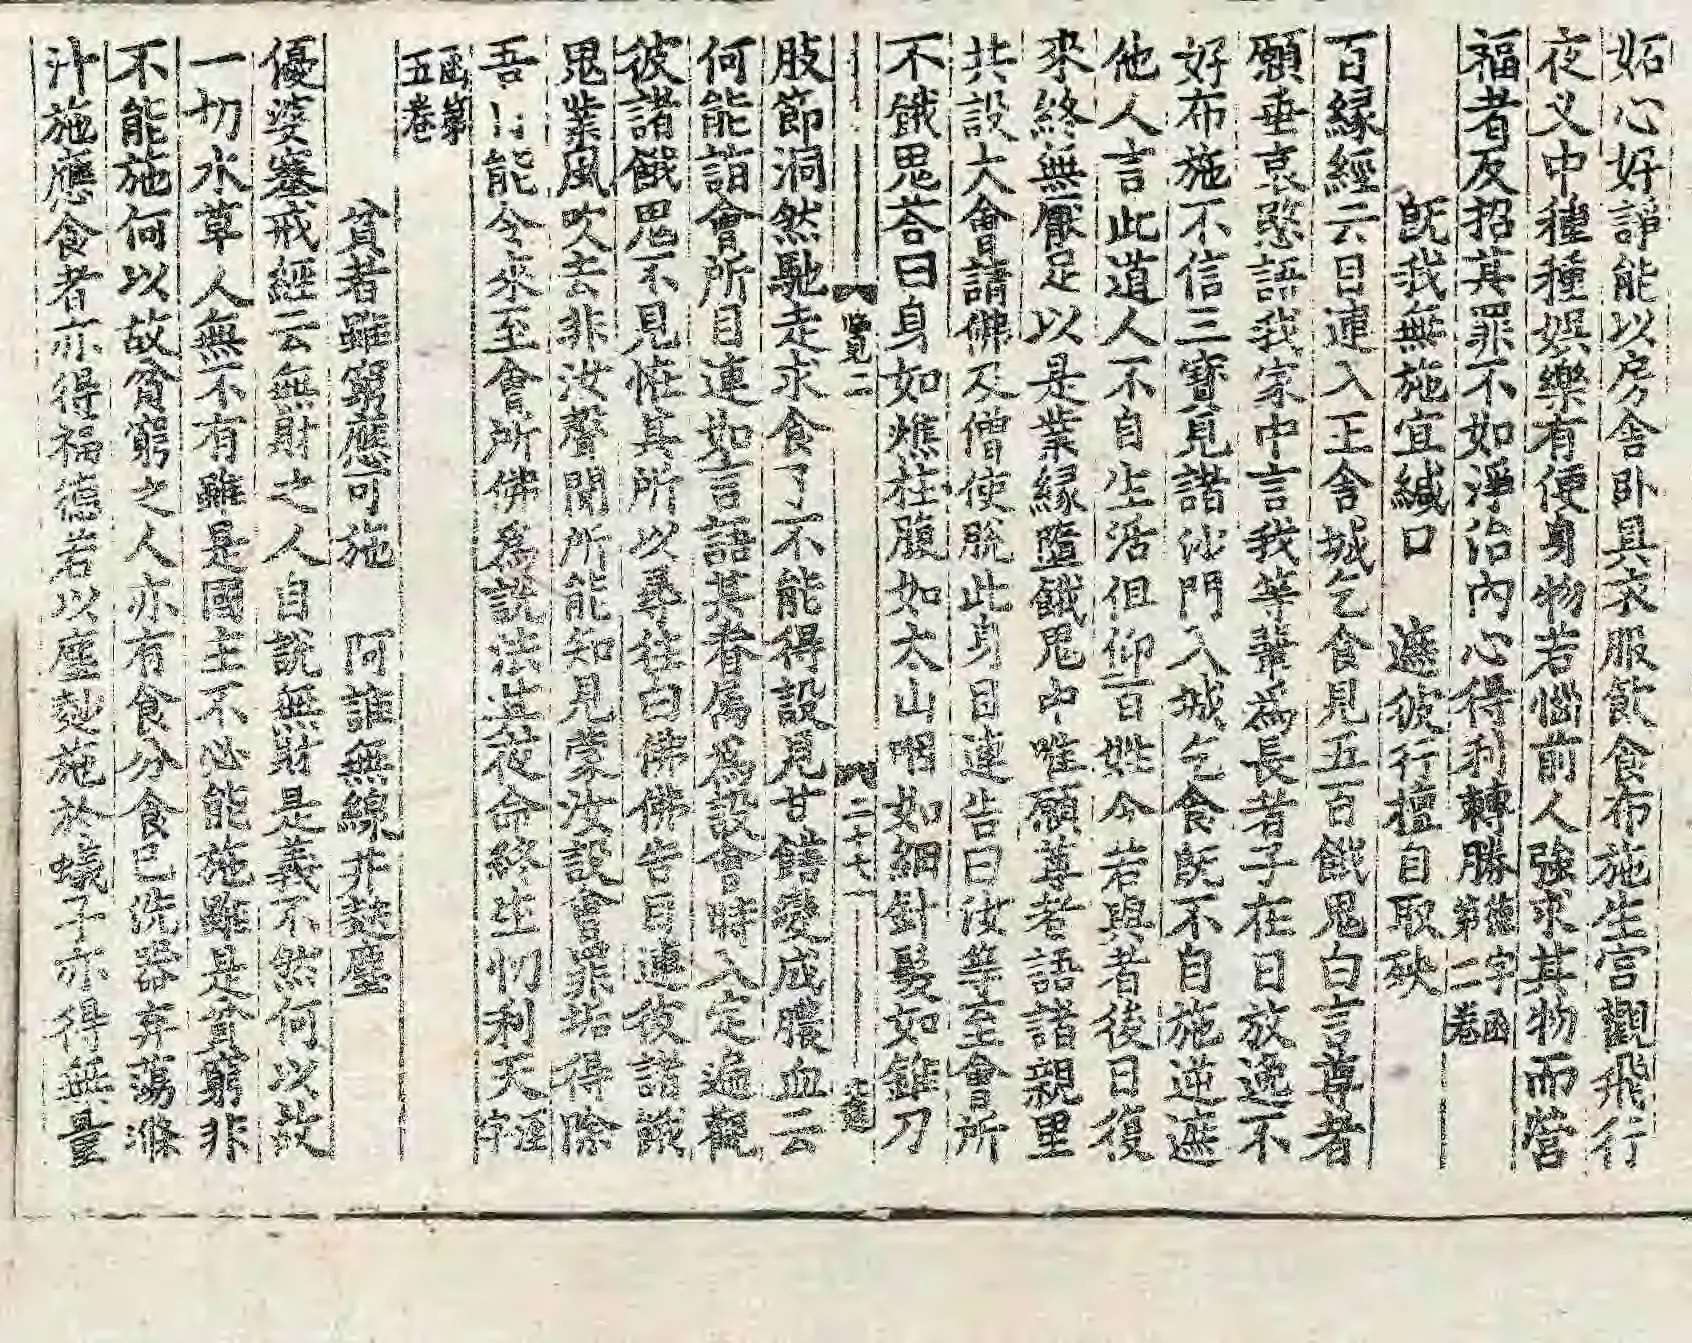 妬心好諍能以房舍卧具衣服飮食布施生宫觀飛行
夜义中種種娯樂有便身物若惱前人強求其物而營
福者及招其罪不如淨治內心得利轉勝
第二卷
字函
旣我無施宜緘口 遮彼行檀自取殃
百緣經云目連入王舍城乞食見五百餓鬼白言尊者
願垂哀愍語我家中言我等輩爲長者子在日放逸不
好布施不信三寶見諸沙門入城乞食旣不自施逆遮
他人言此道人不自生活但仰百姓今若與者後日復
來終無厭足以是業緣墮餓鬼中唯願尊者語諸親里
共設大會請佛及僧使脫此身目連告曰汝等至會所
不餓鬼荅曰身如燋柱腹如太山咽如細針髮如錐刀
二
二十七
肢節洞然馳走求食了不能得設見甘饍變成膿血云
何能詣會所目連如言語其眷属爲設會時入定遍觀
彼諸餓鬼不見恠其所以尋往白佛佛告目連彼諸餓
鬼業風吹去非汝聲聞所能知見蒙汝設會罪垢得除
吾能令來至會所佛爲說法其夜命終生忉利天
函第
五卷
貧者雖窮應可施 阿誰無線并麨塵
優婆塞戒經云無財之人自說無財是義不然何以故
一切水草人無不有雖是國主不必能施雖是貧窮非
不能施何以故貧窮之人亦有食分食已洗器弃蕩滌
汁施應食者亦得福德若以塵麨施於蟻子亦得無量